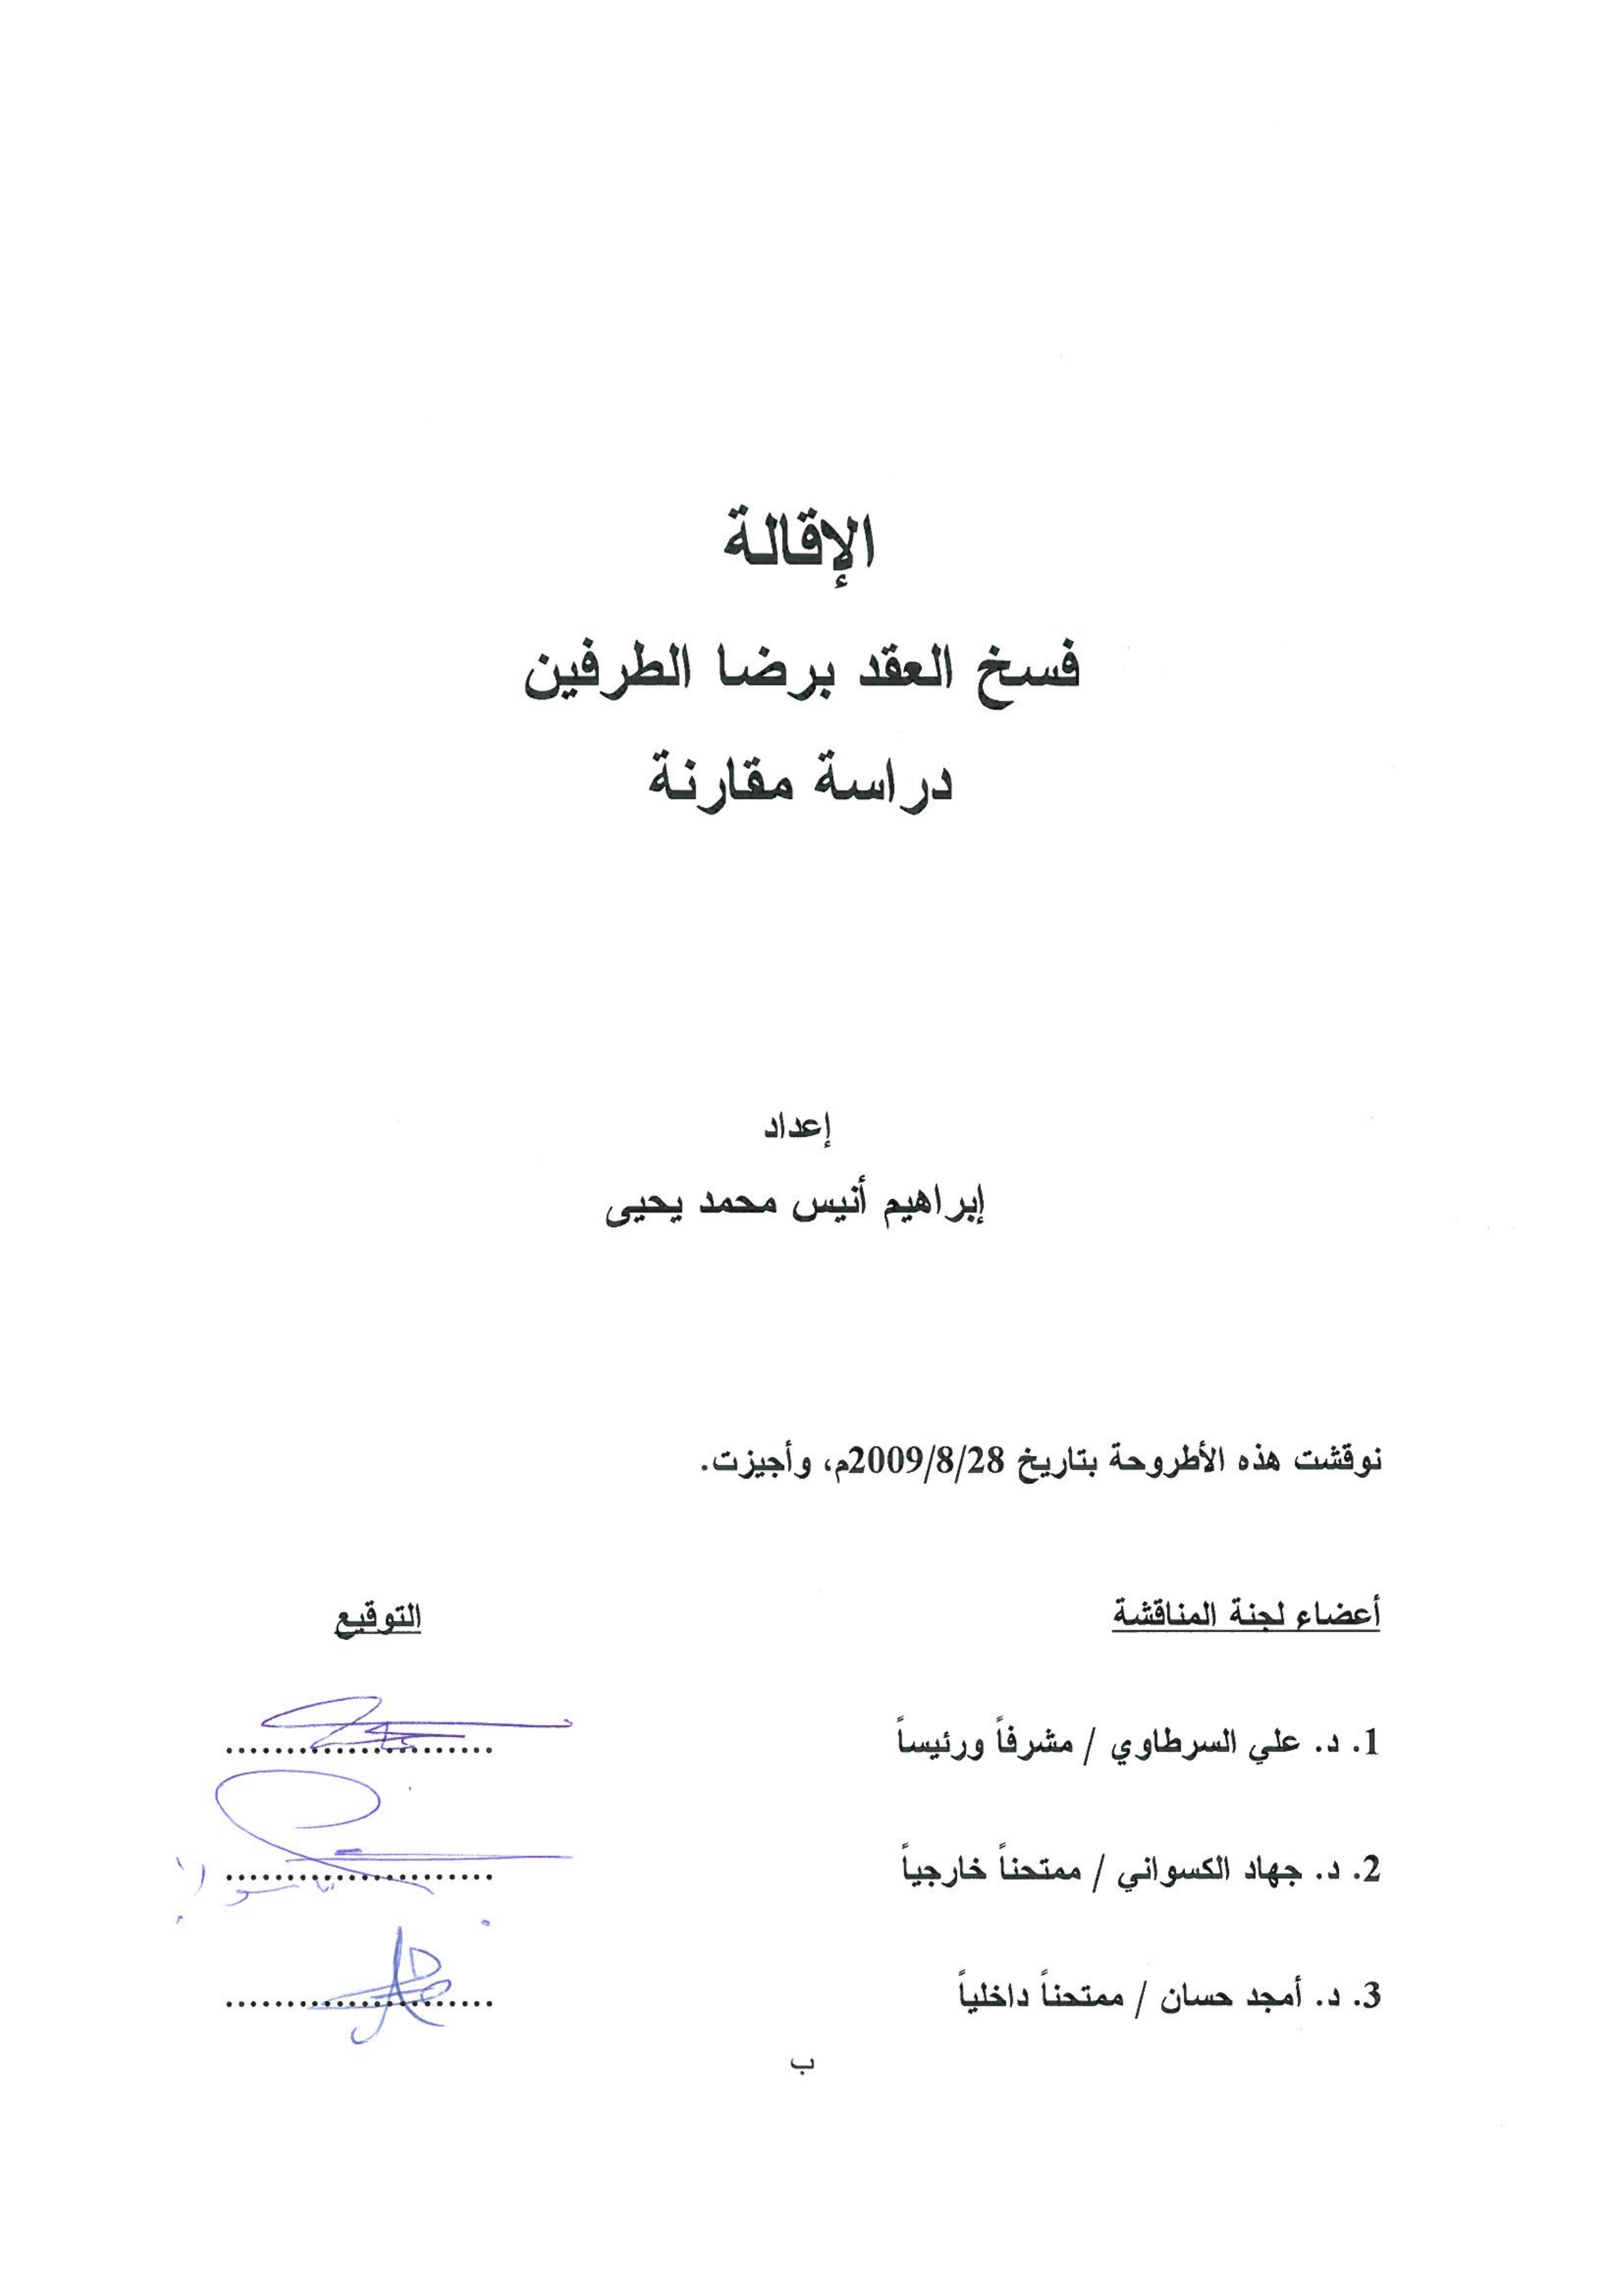 الإقالة
فسخ العقد برضا الطرفين
دراسة مقارنة
إعداد
إبراهيم أنيس محمد يحيى
نوقشت هذه الأطروحة بتاريخ 2009/8/28م، وأجيزت.
أعضاء لجنة المناقشة التوقيع
1. د. علي السرطاوي / مشرفاً ورئيساً ......................
2. د. جهاد الكسواني / ممتحناً خارجياً ......................
3. د. أمجد حسان / ممتحناً داخلياً ......................
ب